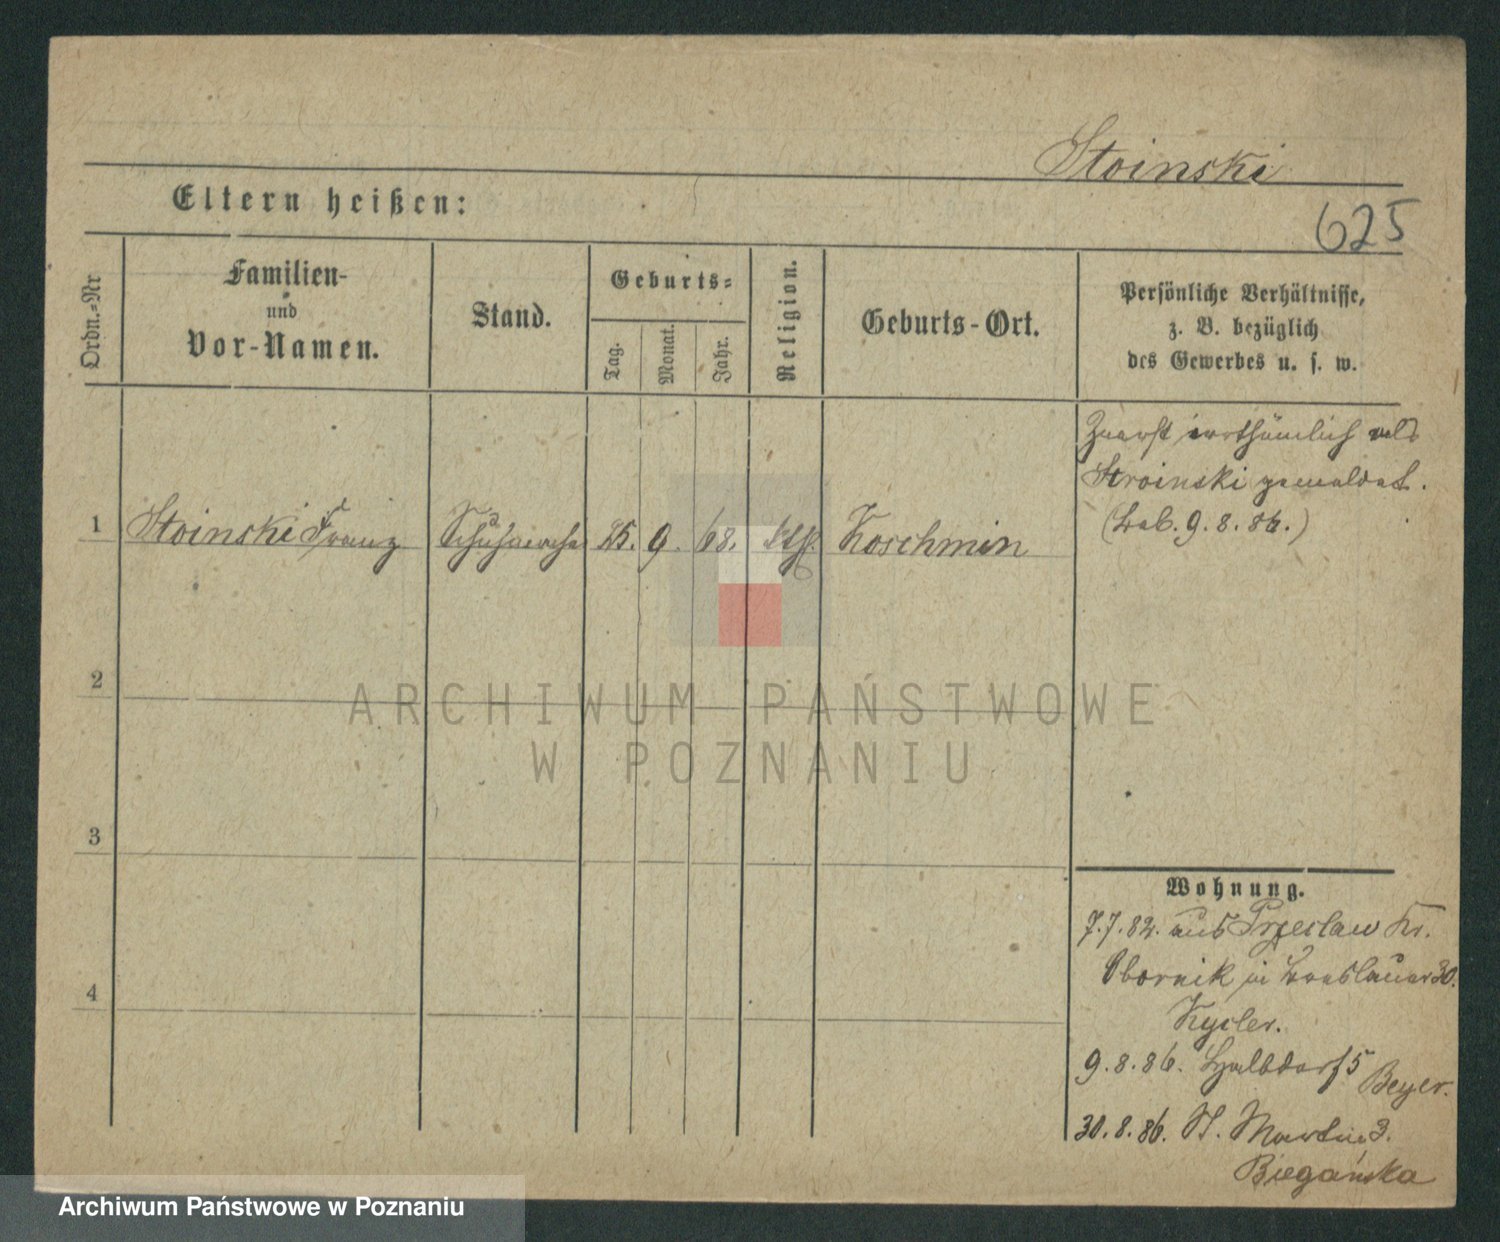 Stoinski
Eltern heißen:
625
Ordn.-Nr
Familien-
und
Vor-Namen.
Stand.
Geburts-
Tag.
Monat.
Jahr.
Religion.
Geburts-Ort.
Persönliche Verhältnisse,
z. B. bezüglich
des Gewerbes u. s. w.
Zuerst irrthümlich als
Stroinski gemeldet.
(Lab. 9.8.86.)
1 Stoinski Franz 25. 9. 68. kth. Koschmin
2
3
4
Wohnung.
7.7.82. aus Przeslaw Kr.
Obornik in Breslauer 30.
Kysler.
9.8.86. Halbdorf 5
Beyer.
30.8.86. St. Martin 3.
Biegańska
ARCHIWUM PAŃSTWOWE
W POZNANIU
Archiwum Państwowe w Poznaniu